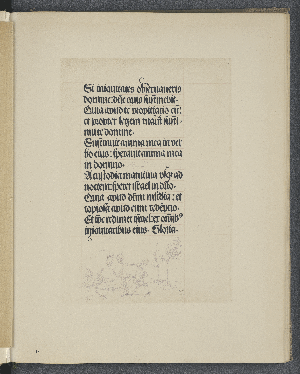 Si iniquitates observaveris
domine: dñe quis sustinebit.
Quia apud te propitiatio est:
et propter legem tuam susti-
nui te domine.
Sustinuit anima mea in ver
bo eius: speravit anima mea
in domino.
A custodia matutina usq; ad
noctem: speret israel in dño.
Quia apud dñm mīa: et
copiosa apud eum redēptio.
Et ipse redimet israel ex omīb9
iniquitatibus eius. Gloria.